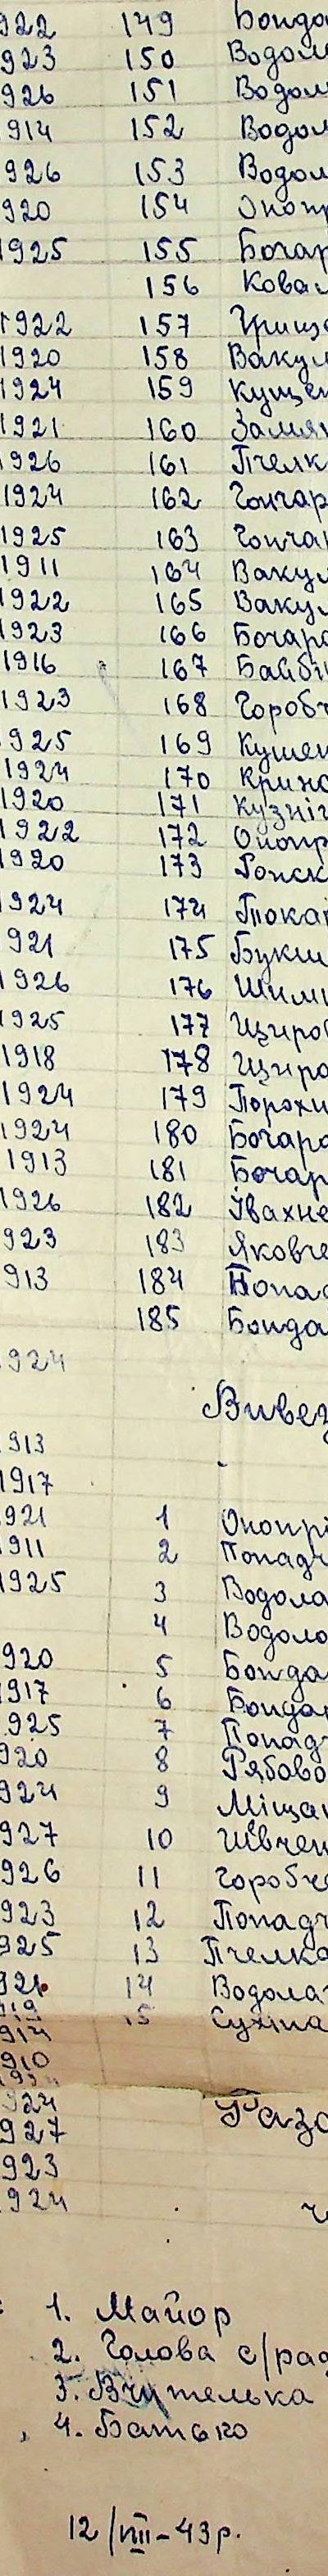 922 149 Бонда
923 150 Водол
926 151 Водол
914 152 Водол
926 153 Водол
920 154 Оноп
1925 155 Бочар
156 Ковал
1922 157 Грищ
1920 158 Вакул
1924 159 Кущен
1921 160
1926 161 Пчелк
1924 162 Гончар
1925 163 Гончар
1911 164 Вакул
1922 165 Вакул
1923 166 Бочаро
1916 167
1923 168 Горобч
1925 169 Кушен
1924 170
1920 171 Кузніч
1922 172 Оноп
1920 173
1924 174 Токар
921 175
1926 176
1925 177 Щиро
1918 178 Щиро
1924 179 Порохн
1924 180 Бочаро
1913 181 Бочар
1926 182 Івахне
923 183 Яковче
913 184 Попад
185 Бонда
924
Вивез
913
1917
921 1 Онопрі
1911 2 Попадч
1925 3 Водола
4 Водоло
920 5 Бонда
1917 6 Бондар
925 7 Попад
920 8 Рябово
924 9 Міщан
927 10 Шевчен
926 11 Горобче
923 12 Попадч
925 13 Пчелко
921 14 Водола
919 15 Сухіна
914
910
924
927 Разо
923
924 ч
: 1. Майор
2. Голова с/рад
3. Вчителька
, 4. Батько
12/VIII-43р.